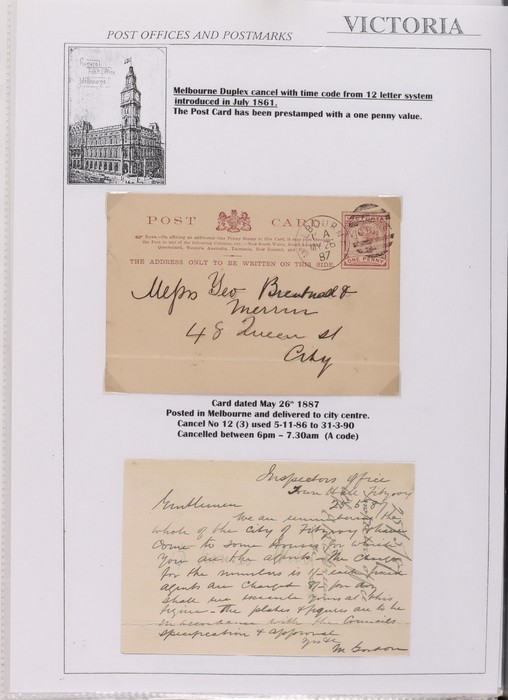 VICTORIA
POST OFFICES AND POSTMARKS
General
Post Office
Melbourne
Melbourne Duplex cancel with time code from 12 letter system
introduced in July 1861.
The Post Card has been prestamped with a one penny value.
POST CARD
THE ADDRESS ONLY TO BE WRITTEN ON THIS SIDE
MELBOURNE
A
MY 26
87
VICTORIA
ONE PENNY
Messrs Geo Brentnall &
Merrin
48 Queen St
City
Card dated May 26th 1887
Posted in Melbourne and delivered to city centre.
Cancel No 12 (3) used 5-11-86 to 31-3-90
Cancelled between 6pm – 7.30am (A code)
Inspectors Office
Town Hall Fitzroy
25 5 87
Gentlemen
We are renumbering the
whole of the City of Fitzroy &
Come to some Houses for which
You are the agents. The Charge
for the numbers is 1/- each
agents are Charged for
Shall we execute yours at this
figure - the plates & figures are to be
in accordance with the Councils
specification & approval
Yrs &c
M Gordon